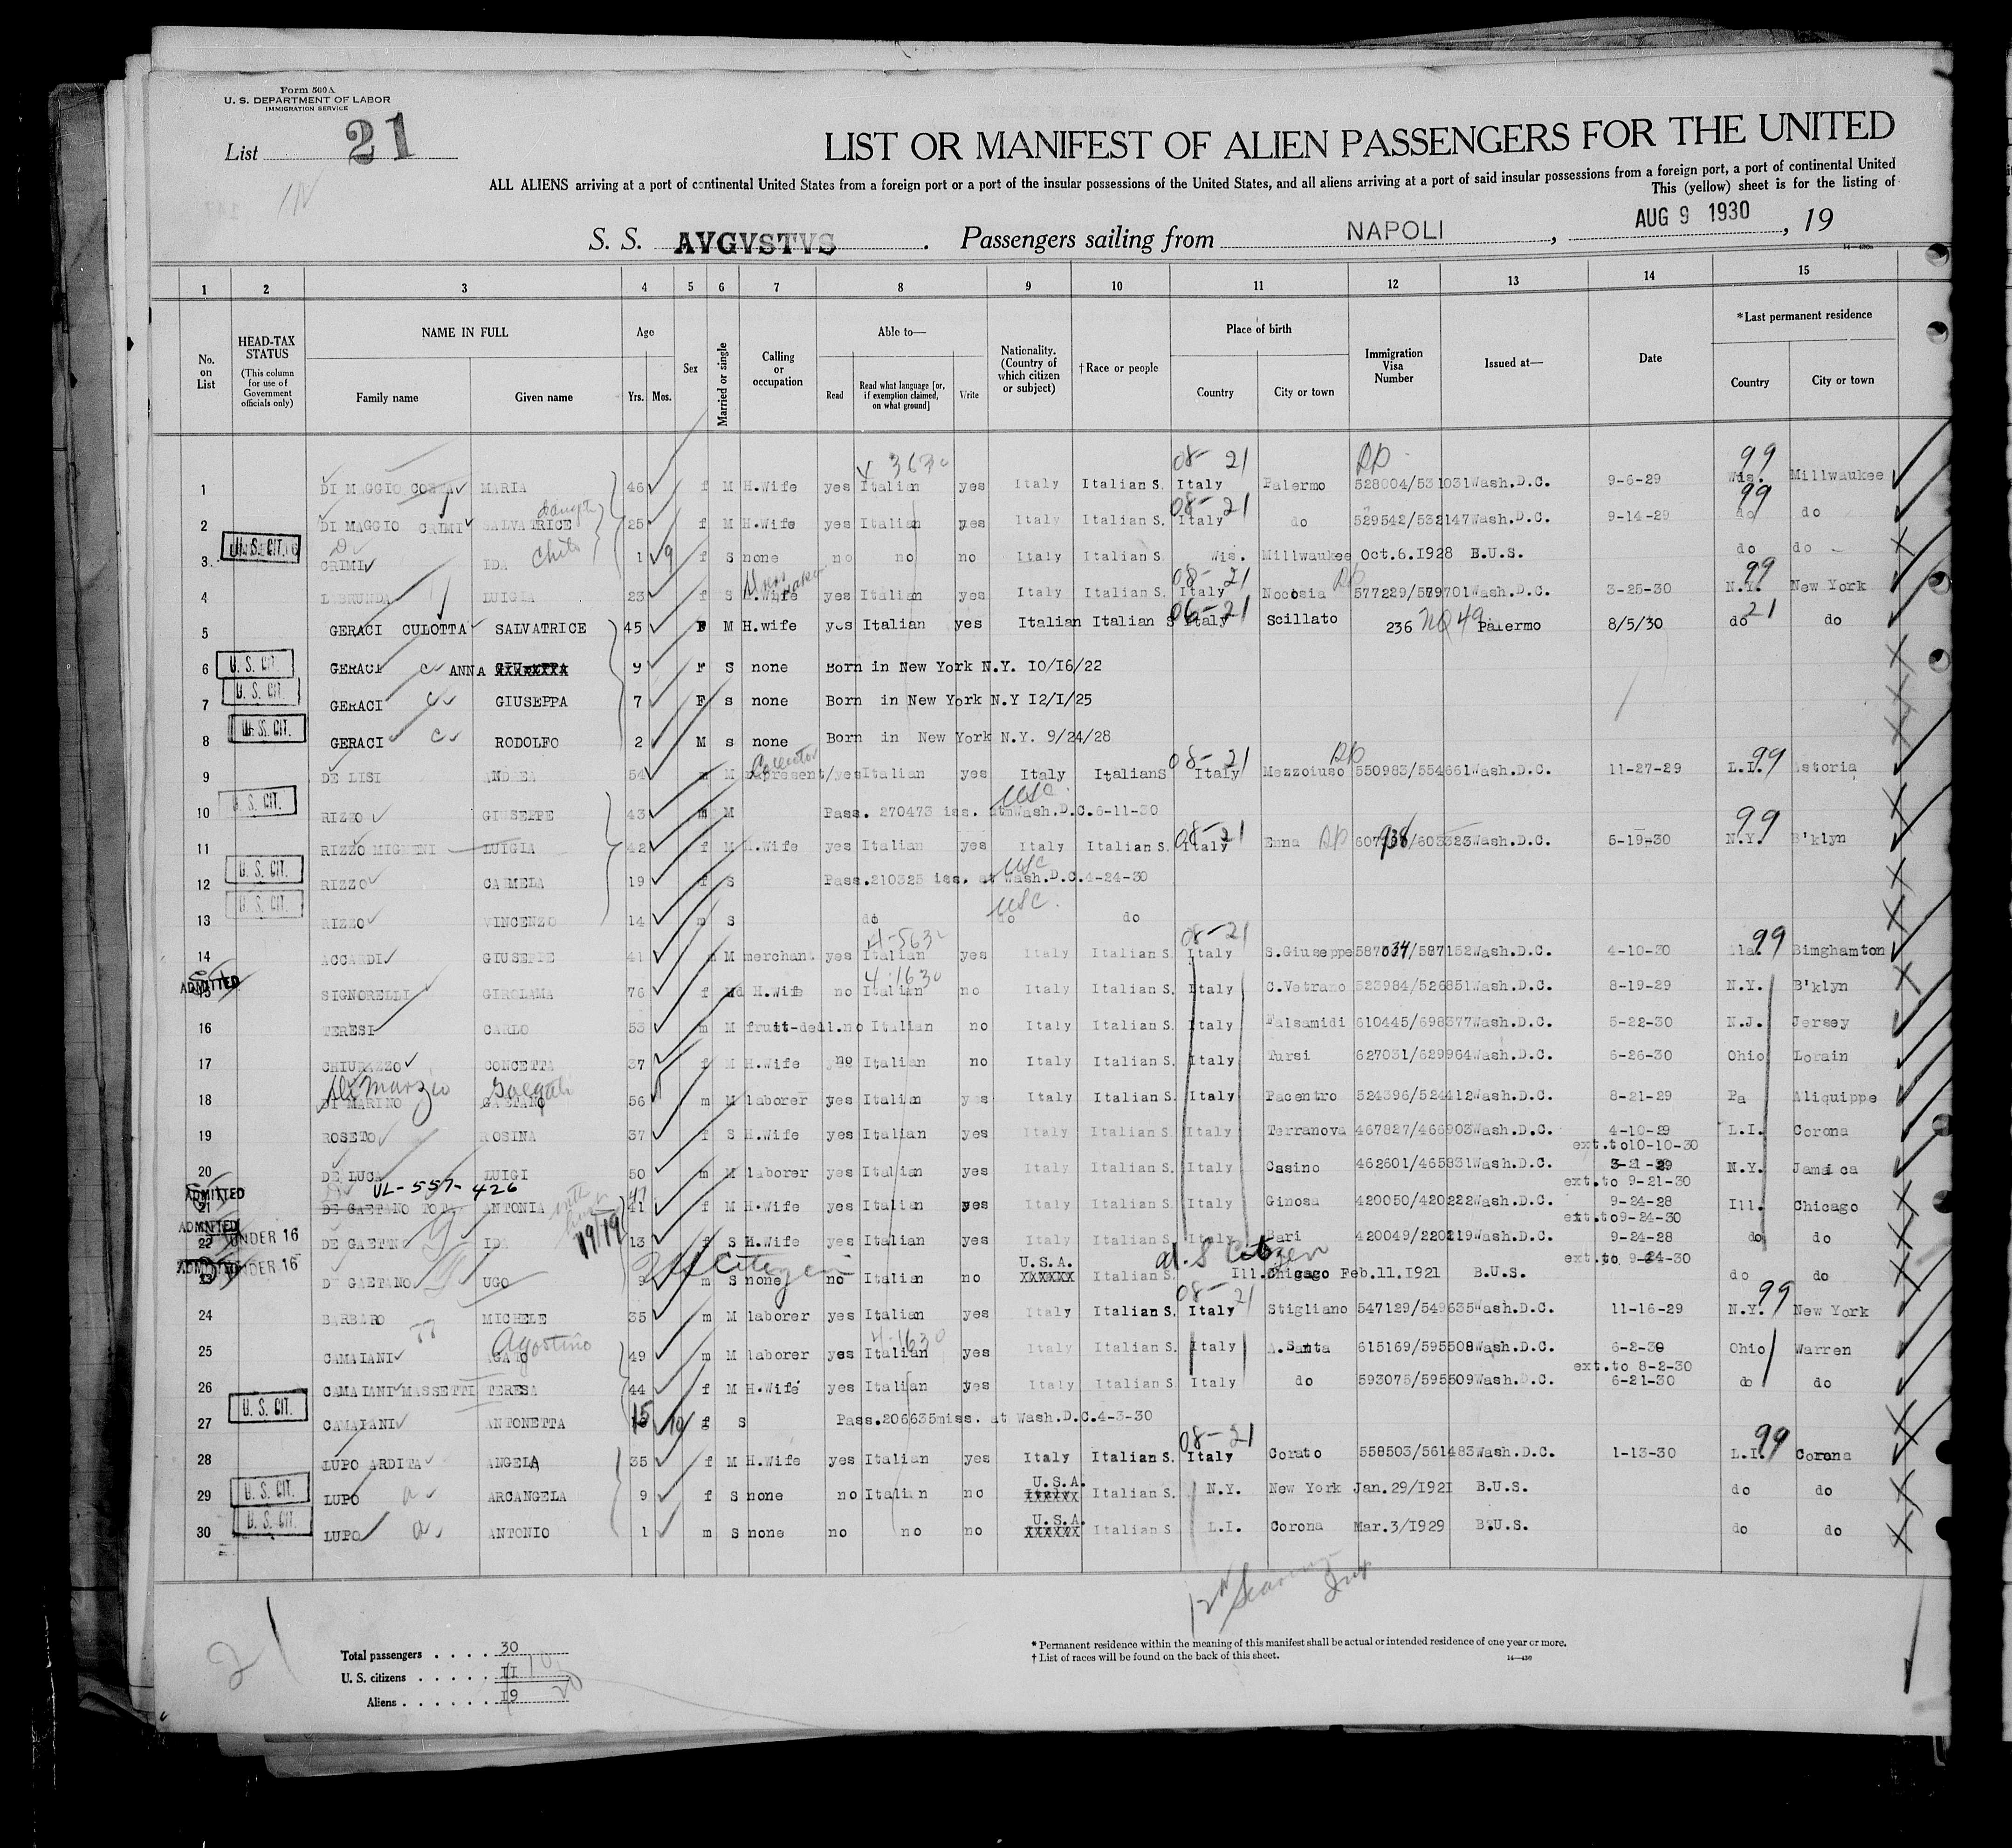 Form 500A
U. S. DEPARTMENT OF LABOR
IMMIGRATION SERVICE
List 21
LIST OR MANIFEST OF ALIEN PASSENGERS FOR THE UNITED
ALL ALIENS arriving at a port of continental United States from a foreign port or a port of the insular possessions of the United States, and all aliens arriving at a port of said insular possessions from a foreign port, a port of continental United
This (yellow) sheet is for the listing of
S. S. AVGVSTVS . Passengers sailing from NAPOLI , AUG 9 1930 , 19
1 2 3 4 5 6 7 8 9 10 11 12 13 14 15
No. on List
HEAD-TAX STATUS (This column for use of Government officials only)
NAME IN FULL Family name Given name
Age Yrs. Mos.
Sex
Married or single
Calling or occupation
Able to— Read Read what language [or, if exemption claimed, on what ground] Write
Nationality. (Country of which citizen or subject)
†Race or people
Place of birth Country City or town
Immigration Visa Number
Issued at—
Date
*Last permanent residence Country City or town
4 3630 08- 21 99
1 DI MAGGIO COSTA MARIA 46 f M H.Wife yes Italian yes Italy Italian S. Italy Palermo 528004/531031 Wash.D.C. 9-6-29 Wis. Millwaukee
08- 21 99
2 DI MAGGIO CRIMI SALVATRICE 25 f M H.Wife yes Italian yes Italy Italian S. Italy do 529542/532147 Wash.D.C. 9-14-29 do do
U. S. CIT.
3 CRIMI IDA Child 1 9 f S none no no no Italy Italian S. Wis. Millwaukee Oct.6.1928 B.U.S. do do
08- 21 99
4 LABRUNDA LUIGIA 23 f S H.Wife yes Italian yes Italy Italian S. Italy Nocosia 577229/579701 Wash.D.C. 3-25-30 N.Y. New York
06-21 21
5 GERACI CULOTTA SALVATRICE 45 F M H.wife yes Italian yes Italian Italian S Italy Scillato 236 NQ 49 Palermo 8/5/30 do do
6 U. S. CIT. GERACI ANNA 9 F S none Born in New York N.Y. 10/16/22
7 U. S. CIT. GERACI GIUSEPPA 7 F s none Born in New York N.Y 12/1/25
8 U. S. CIT. GERACI RODOLFO 2 M s none Born in New York N.Y. 9/24/28
08-21 99
9 DE LISI ANDREA 54 m M represent/yes Italian yes Italy Italian S Italy Mezzoiuso 550983/554661 Wash.D.C. 11-27-29 L.I. Astoria
10 U. S. CIT. RIZZO GIUSEPPE 43 m M Pass. 270473 iss. at Wash.D.C.6-11-30 USC
08-21 99
11 RIZZO MIGNENI LUIGIA 42 f M H.Wife yes Italian yes Italy Italian S. Italy Enna Wash.D.C. 5-19-30 N.Y. B'klyn
12 U. S. CIT. RIZZO CARMELA 19 f S Pass.210325 iss. at Wash.D.C.4-24-30 USC
13 U. S. CIT. RIZZO VINCENZO 14 m S do do do USC.
4-563 08-21
14 ACCARDI GIUSEPPE 41 M merchan. yes Italian yes Italy Italian S. Italy S.Giuseppe 587034/587152 Wash.D.C. 4-10-30 99 Binghamton
ADMITTED 4-1630
15 SIGNORELLI GIROLAMA 76 f Wd H.Wife no Italian no Italy Italian S. Italy C.Vetrano 523984/526851 Wash.D.C. 8-19-29 N.Y. B'klyn
16 TERESI CARLO 53 m M fruit-deal. no Italian no Italy Italian S. Italy Falsamidi 610445/698377 Wash.D.C. 5-22-30 N.J. Jersey
17 CHIURAZZO CONCETTA 37 f M H.Wife no Italian no Italy Italian S. Italy Tursi 627031/629964 Wash.D.C. 6-26-30 Ohio Lorain
Di Marzio
18 DI MARINO GAETANO 56 m M laborer yes Italian yes Italy Italian S. Italy Pacentro 524396/524412 Wash.D.C. 8-21-29 Pa Aliquippe
19 ROSETO ROSINA 37 f S H.Wife yes Italian yes Italy Italian S. Italy Terranova 467827/466903 Wash.D.C. 4-10-29 L.I. Corona
ext.to10-10-30
20 DE LUCA LUIGI 50 m M laborer yes Italian yes Italy Italian S. Italy Casino 462601/465831 Wash.D.C. 3-21-29 N.Y. Jamaica
UL-557-426 ext.to 9-21-30
ADMITTED
21 DE GAETANO TOTA ANTONIA 41 f M H.Wife yes Italian yes Italy Italian S. Italy Ginosa 420050/420222 Wash.D.C. 9-24-28 Ill. Chicago
ext.to9-24-30
ADMITTED UNDER 16
22 DE GAETANO IDA 13 f S H.Wife yes Italian yes Italy Italian S. Italy Bari 420049/220219 Wash.D.C. 9-24-28 do do
ext.to 9-24-30
ADMITTED UNDER 16 US Citizen U.S.A. U.S Citizen
23 DE GAETANO UGO 9 m S none no Italian no XXXXXX Italian S. Ill. Chicago Feb.11.1921 B.U.S. do do
08- 21 99
24 BARBARO MICHELE 35 m M laborer yes Italian yes Italy Italian S. Italy Stigliano 547129/549635 Wash.D.C. 11-16-29 N.Y. New York
Agostino 4-1630
25 CAMAIANI AGATO 49 m M laborer yes Italian yes Italy Italian S. Italy A.Santa 615169/595508 Wash.D.C. 6-2-30 Ohio Warren
ext.to 8-2-30
26 CAMAIANI MASSETTI TERESA 44 f M H.Wife yes Italian yes Italy Italian S. Italy do 593075/595509 Wash.D.C. 6-21-30 do do
27 U. S. CIT. CAMAIANI ANTONETTA 15 10 f S Pass.206635miss. at Wash.D.C.4-3-30
08-21 99
28 LUPO ARDITA ANGELA 35 f M H.Wife yes Italian yes Italy Italian S. Italy Corato 558503/561483 Wash.D.C. 1-13-30 L.I. Corona
U.S.A.
29 U. S. CIT. LUPO ARCANGELA 9 f S none no Italian no XXXXXX Italian S. N.Y. New York Jan.29/1921 B.U.S. do do
U.S.A.
30 U. S. CIT. LUPO ANTONIO 1 m S none no no no XXXXXX Italian S L.I. Corona Mar.3/1929 B.U.S. do do
21
Total passengers . . . . 30
U. S. citizens . . . . . 11 10
Aliens . . . . . . 19 20
* Permanent residence within the meaning of this manifest shall be actual or intended residence of one year or more.
† List of races will be found on the back of this sheet.
14—430